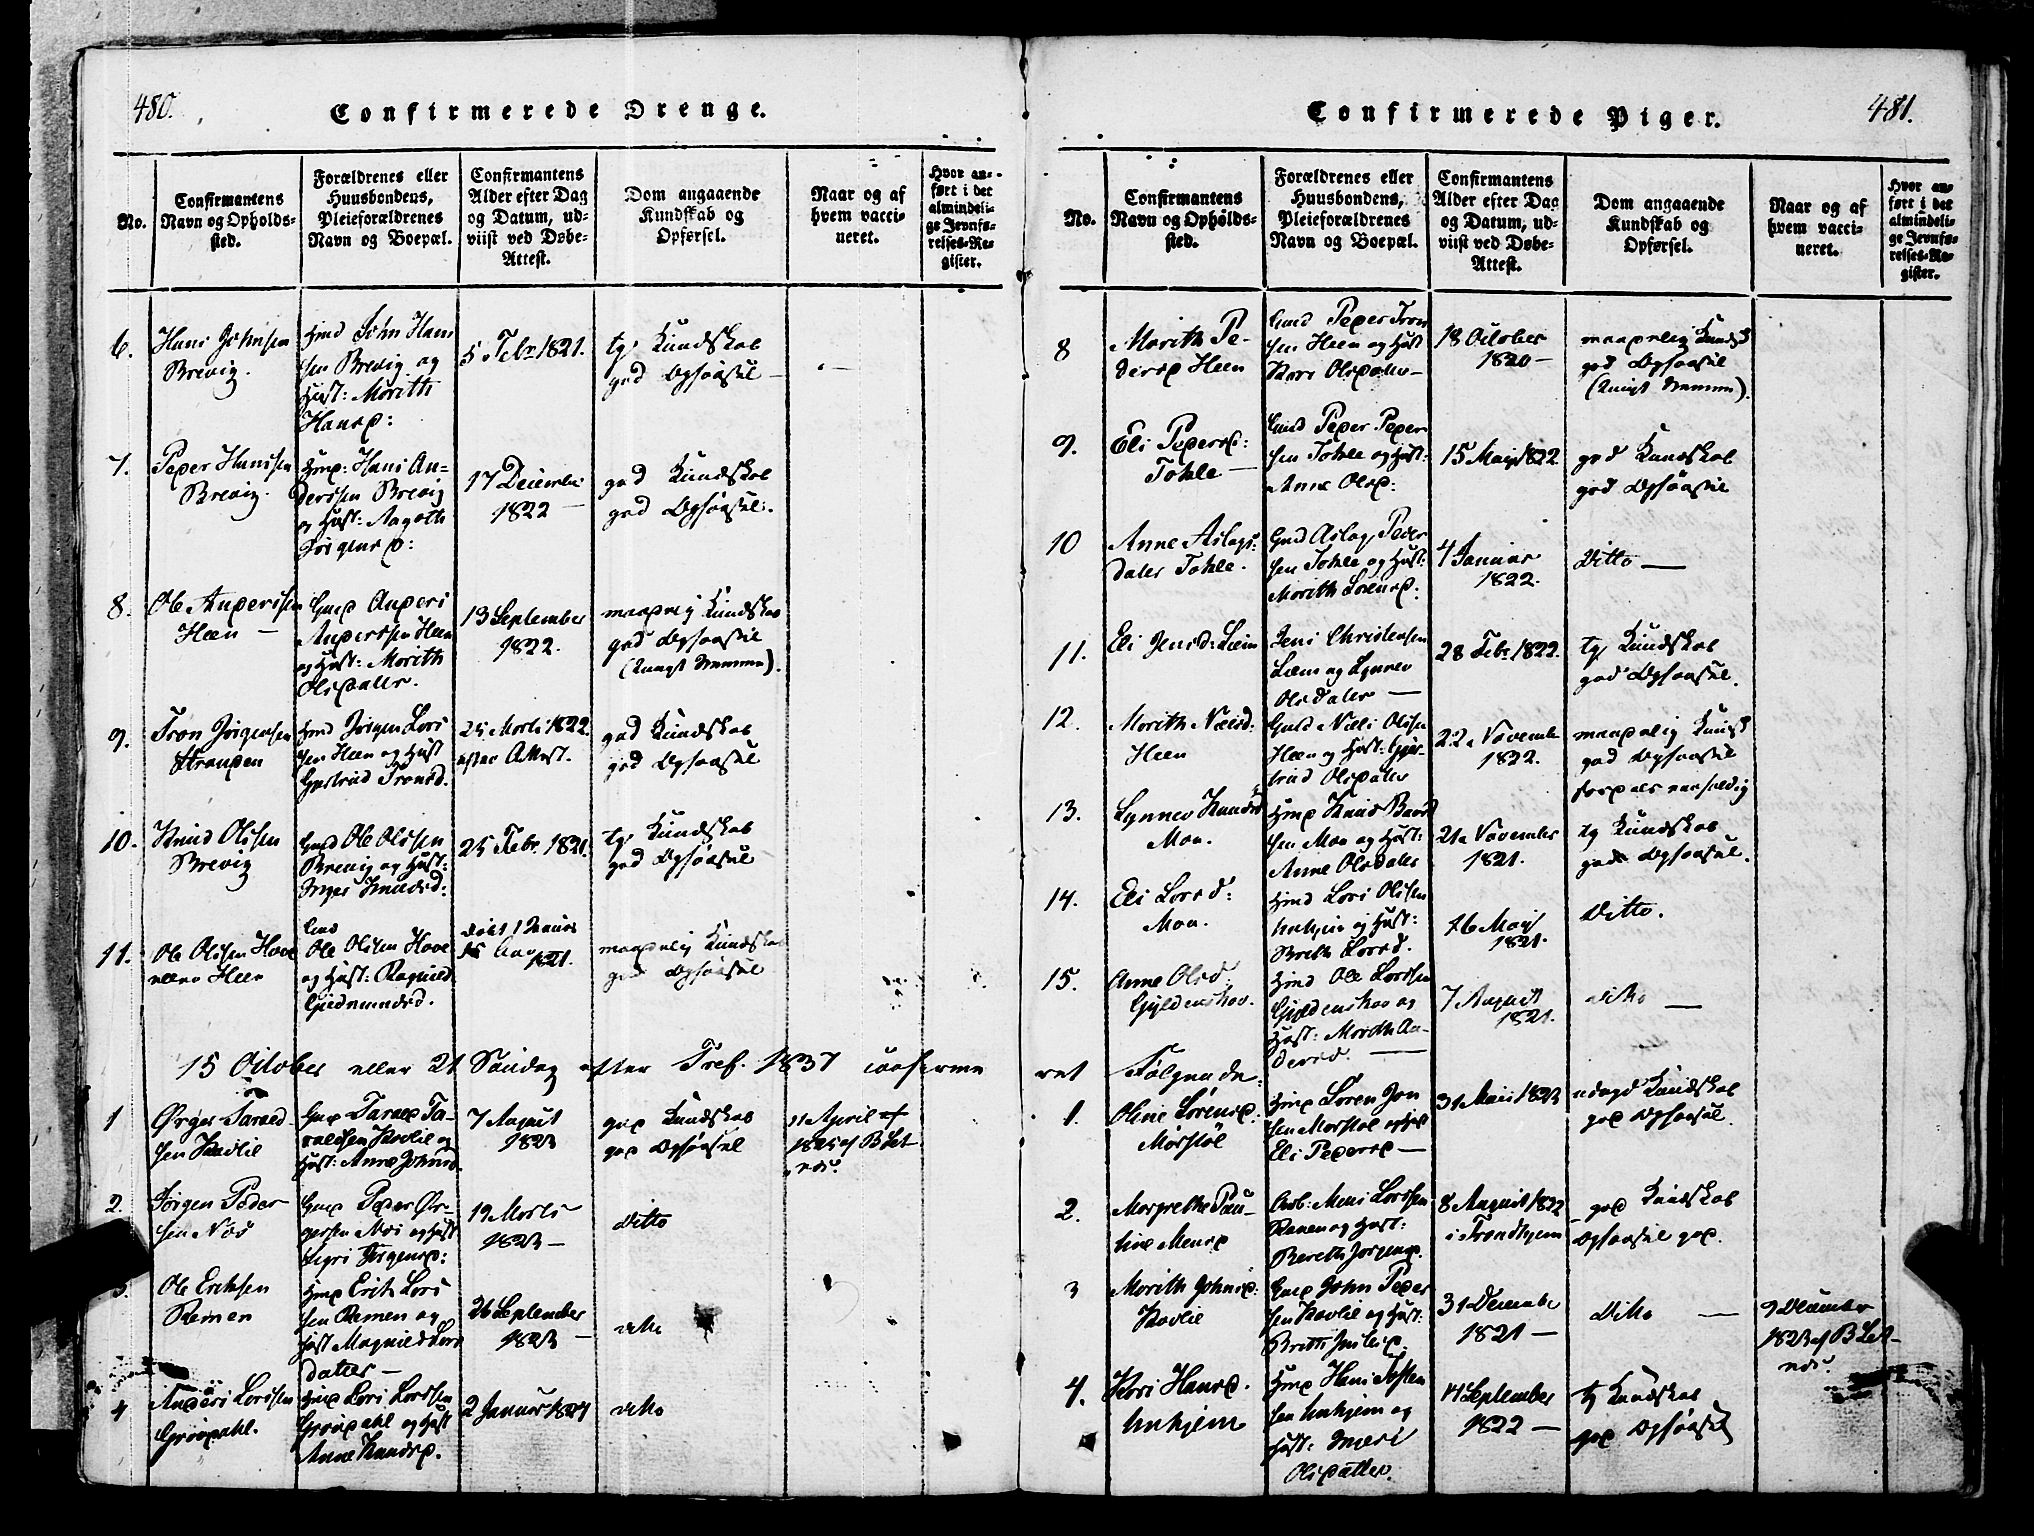 480.
Confirmerede Drenge.
No.
Confirmantens
Navn og Opholds-
sted.
Forældrenes eller
Huusbondens,
Pleieforældrenes
Navn og Boepæl.
Confirmantens
Alder efter Dag
og Datum, ud-
viist ved Døbe-
Attest.
Dom angaaende
Kundskab og
Opførsel.
Naar og af
hvem vacci-
neret.
Hvor an-
ført i det
almindeli-
ge Jevnfø-
relses-Re-
gister.
6.
Hans Johnsen
Brevig.
John Han
sen Brevig og
Hust: Morith
Hansd:
5 Febr 1821.
tg. Kundskab
god Opførsel
7.
Peder Hansen
Brevig.
Hans An-
dersen Brevig
og Hust: Aagoth
Jørgensd:
17 December
1822
god Kundskab
god Opførsel.
8.
Ole Andersen
Heen
Gmd Anders
Andersen Heen
og Hust: Morith
Olsdatter.
13 September
1822.
maadelig Kundskab
god Opførsel
9.
Tron Jørgensen
Stranden
Jørgen Lars
sen Heen og Hust
Giertrud Tronsd.
25 Marts 1822.
efter Attest.
god Kundskab
god Opførsel
10.
Knud Olsen
Brevig
Gmd Ole Olsen
Brevig og Hust:
Inger Knudsd:
25 Febr. 1821.
tg. Kundskab
god Opførsel
11.
Ole Olsen Hove
Heen
Gmd
Ole Olsen Hove
og Hust: Ragnild
Gudmundsd.
døbt 1 Januar
1821.
maadelig Kundskab
god Opførsel
15 October eller 21 Søndag efter Tref. 1837 confirme
1
Ørger Tarald-
sen Kavlie
Gmd Tarald Ta-
raldsen Kavlie og
Hust: Anne Johnsd.
7 August
1823
god Kundskab
god Opførsel
11 April
1825 af B Let-
nes.
2.
Jørgen Peder
sen Næs
Gmd Peder Ør-
gersen Næs og Hust
Sigri Jørgensd:
19 Marts
1823
ditto
3.
Ole Eriksen
Remen
Erik Lars
sen Remen og
Hust Magnild Lars
datter
26 September
1823
ditto
4
Anders Larsen
Grøvdahl.
Lars Larsen
Grøvdahl og Hust
Anne Knudsd.
2 Januar 1824
ditto
481.
Confirmerede Piger.
No.
Confirmantens
Navn og Opholds-
sted.
Forældrenes eller
Huusbondens,
Pleieforældrenes
Navn og Boepæl.
Confirmantens
Alder efter Dag
og Datum, ud-
viist ved Døbe-
Attest.
Dom angaaende
Kundskab og
Opførsel.
Naar og af
hvem vacci-
neret.
Hvor an-
ført i det
almindeli-
ge Jevnfø-
relses-Re-
gister.
8
Morith Pe-
dersd Heen
Gmd Peder Tron
sen Heen og Hust
Kari Olsdatter
18 October
1820
maadelig Kundsk
god Opførsel
9.
Eli Pedersd:
Tokle
Gmd Peder Peder
sen Tokle og Hust:
Anne Olsd:
15 May 1822
god Kundskab
god Opførsel
10
Anne Aslags-
datter Tokle.
Gmd Aslag Peder
sen Tokle og Hust:
Morith Larsd:
4 Januar
1822.
Ditto
11.
Eli Jensd: Liem
Jens Christensen
Liem og Synnev
Olsdatter
28 Febr. 1822.
tg. Kundskab
god Opførsel.
12.
Morith Nielsd:
Heen
Gmd Niels Olsen
Heen og Hust: Gjer-
trud Olsdatter
22 Novemb
1822.
maadelig Kundsk
god Opførsel
13.
Synnev Knudsd
Moa.
Knud Baard
sen Moa og Hust:
Anne Olsdatter
21 November
1821.
tg Kundskab
god Opførsel.
14.
Eli Larsd:
Moa.
Lars Olsen
Unhjem og Hust:
Brith Larsd.
16 May
1821.
Ditto.
15.
Anne Olsd
Gyldenskov.
Ole Larsen
Gyldenskov og
Hust: Morith An-
dersd.
7 August
1821.
ditto
ret Følgende:
1.
Oline Sørensd:
Mørstøl
Søren Jon
sen Mørstøl og Hust
Eli Pedersd
31 Mai 1823
udmgd Kundskab
god Opførsel.
2.
Margrethe Pau-
line Mensd
Mens Larsen
Ranen og Hust:
Bereth Jørgensd.
8 August 1822
i Trondhjem
god Kundskab
Opførsel god.
3
Morith Johnsd:
Kavlie
Gmd John Peder
sen Kavlie og Hust:
31 December
1821
Ditto
9 December
1823 af B Let-
nes.
4.
Kari Hansd.
Unhjem
Hans Tosten
sen Unhjem og
Hust: Ingeri
Olsdatter.
14 September
1822
tg Kundskab
god Opførsel